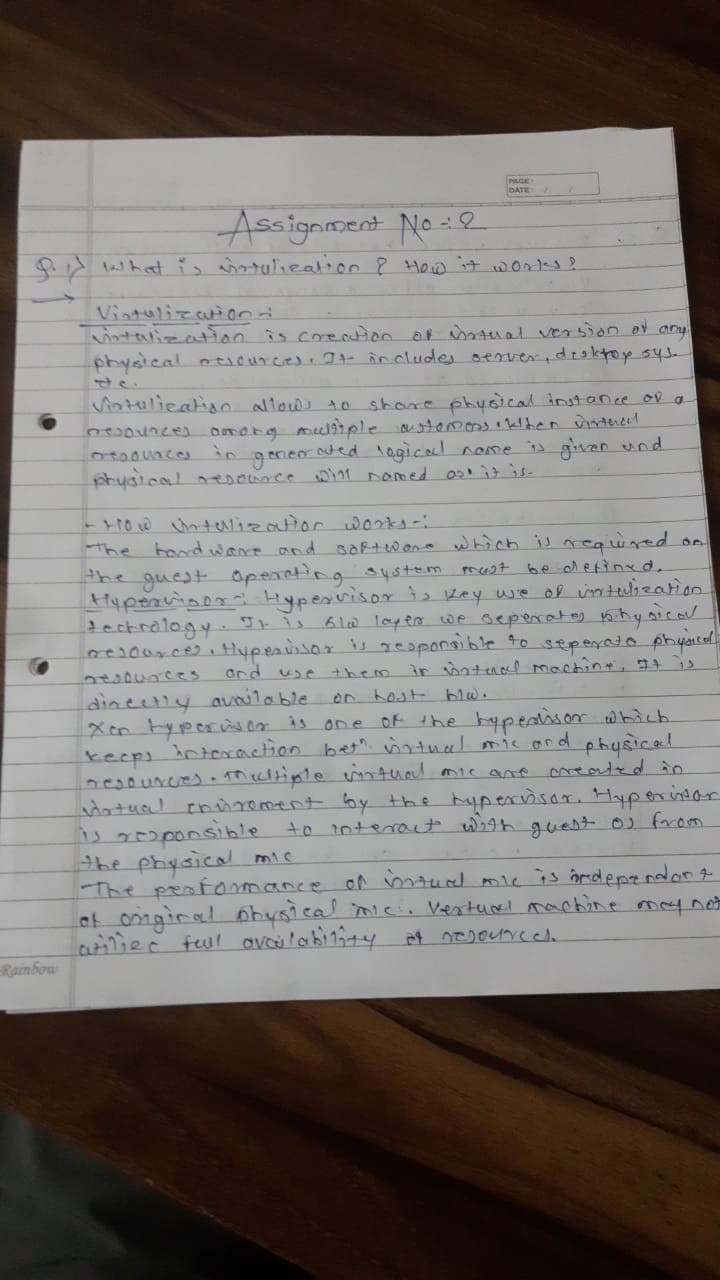 PAGE:
DATE: / /
Assignment No -: 2
Q. 1) What is virtulization ? How it works?
→ Virtulization -:
virtulization is creation of virtual version of any
physical resources. It includes server, desktop sys.
etc.
Virtulization allows to share physical instance of a
resources among multiple customers. When virtual
resources in generated logical name is given and
physical resource will named as it is.
- How virtulization works -:
The hardware and software which is required on
the guest operating system must be defined.
Hypervisor -: Hypervisor is key use of virtulization
technology. It is blw layer we seperates physical
resources. Hypervisor is responsible to seperate physical
resources and use them in virtual machine. It is
directly available on host hlw.
Xen hypervisor is one of the hypervisor which
keeps interaction betn virtual mlc and physical
resources. multiple virtual mlc are created in
virtual enviroment by the hypervisor. Hypervisor
is responsible to interact with guest os from
the physical mlc
The performance of virtual mlc is independant
of original physical mlc. Vertual machine may not
utilies full availability of resources.
Rainbow